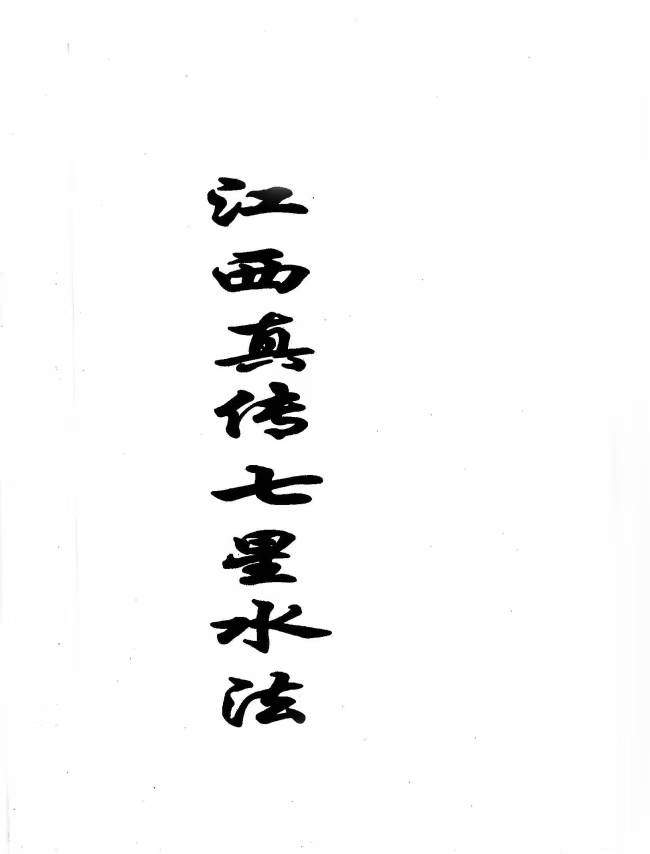 江西真传七星水法